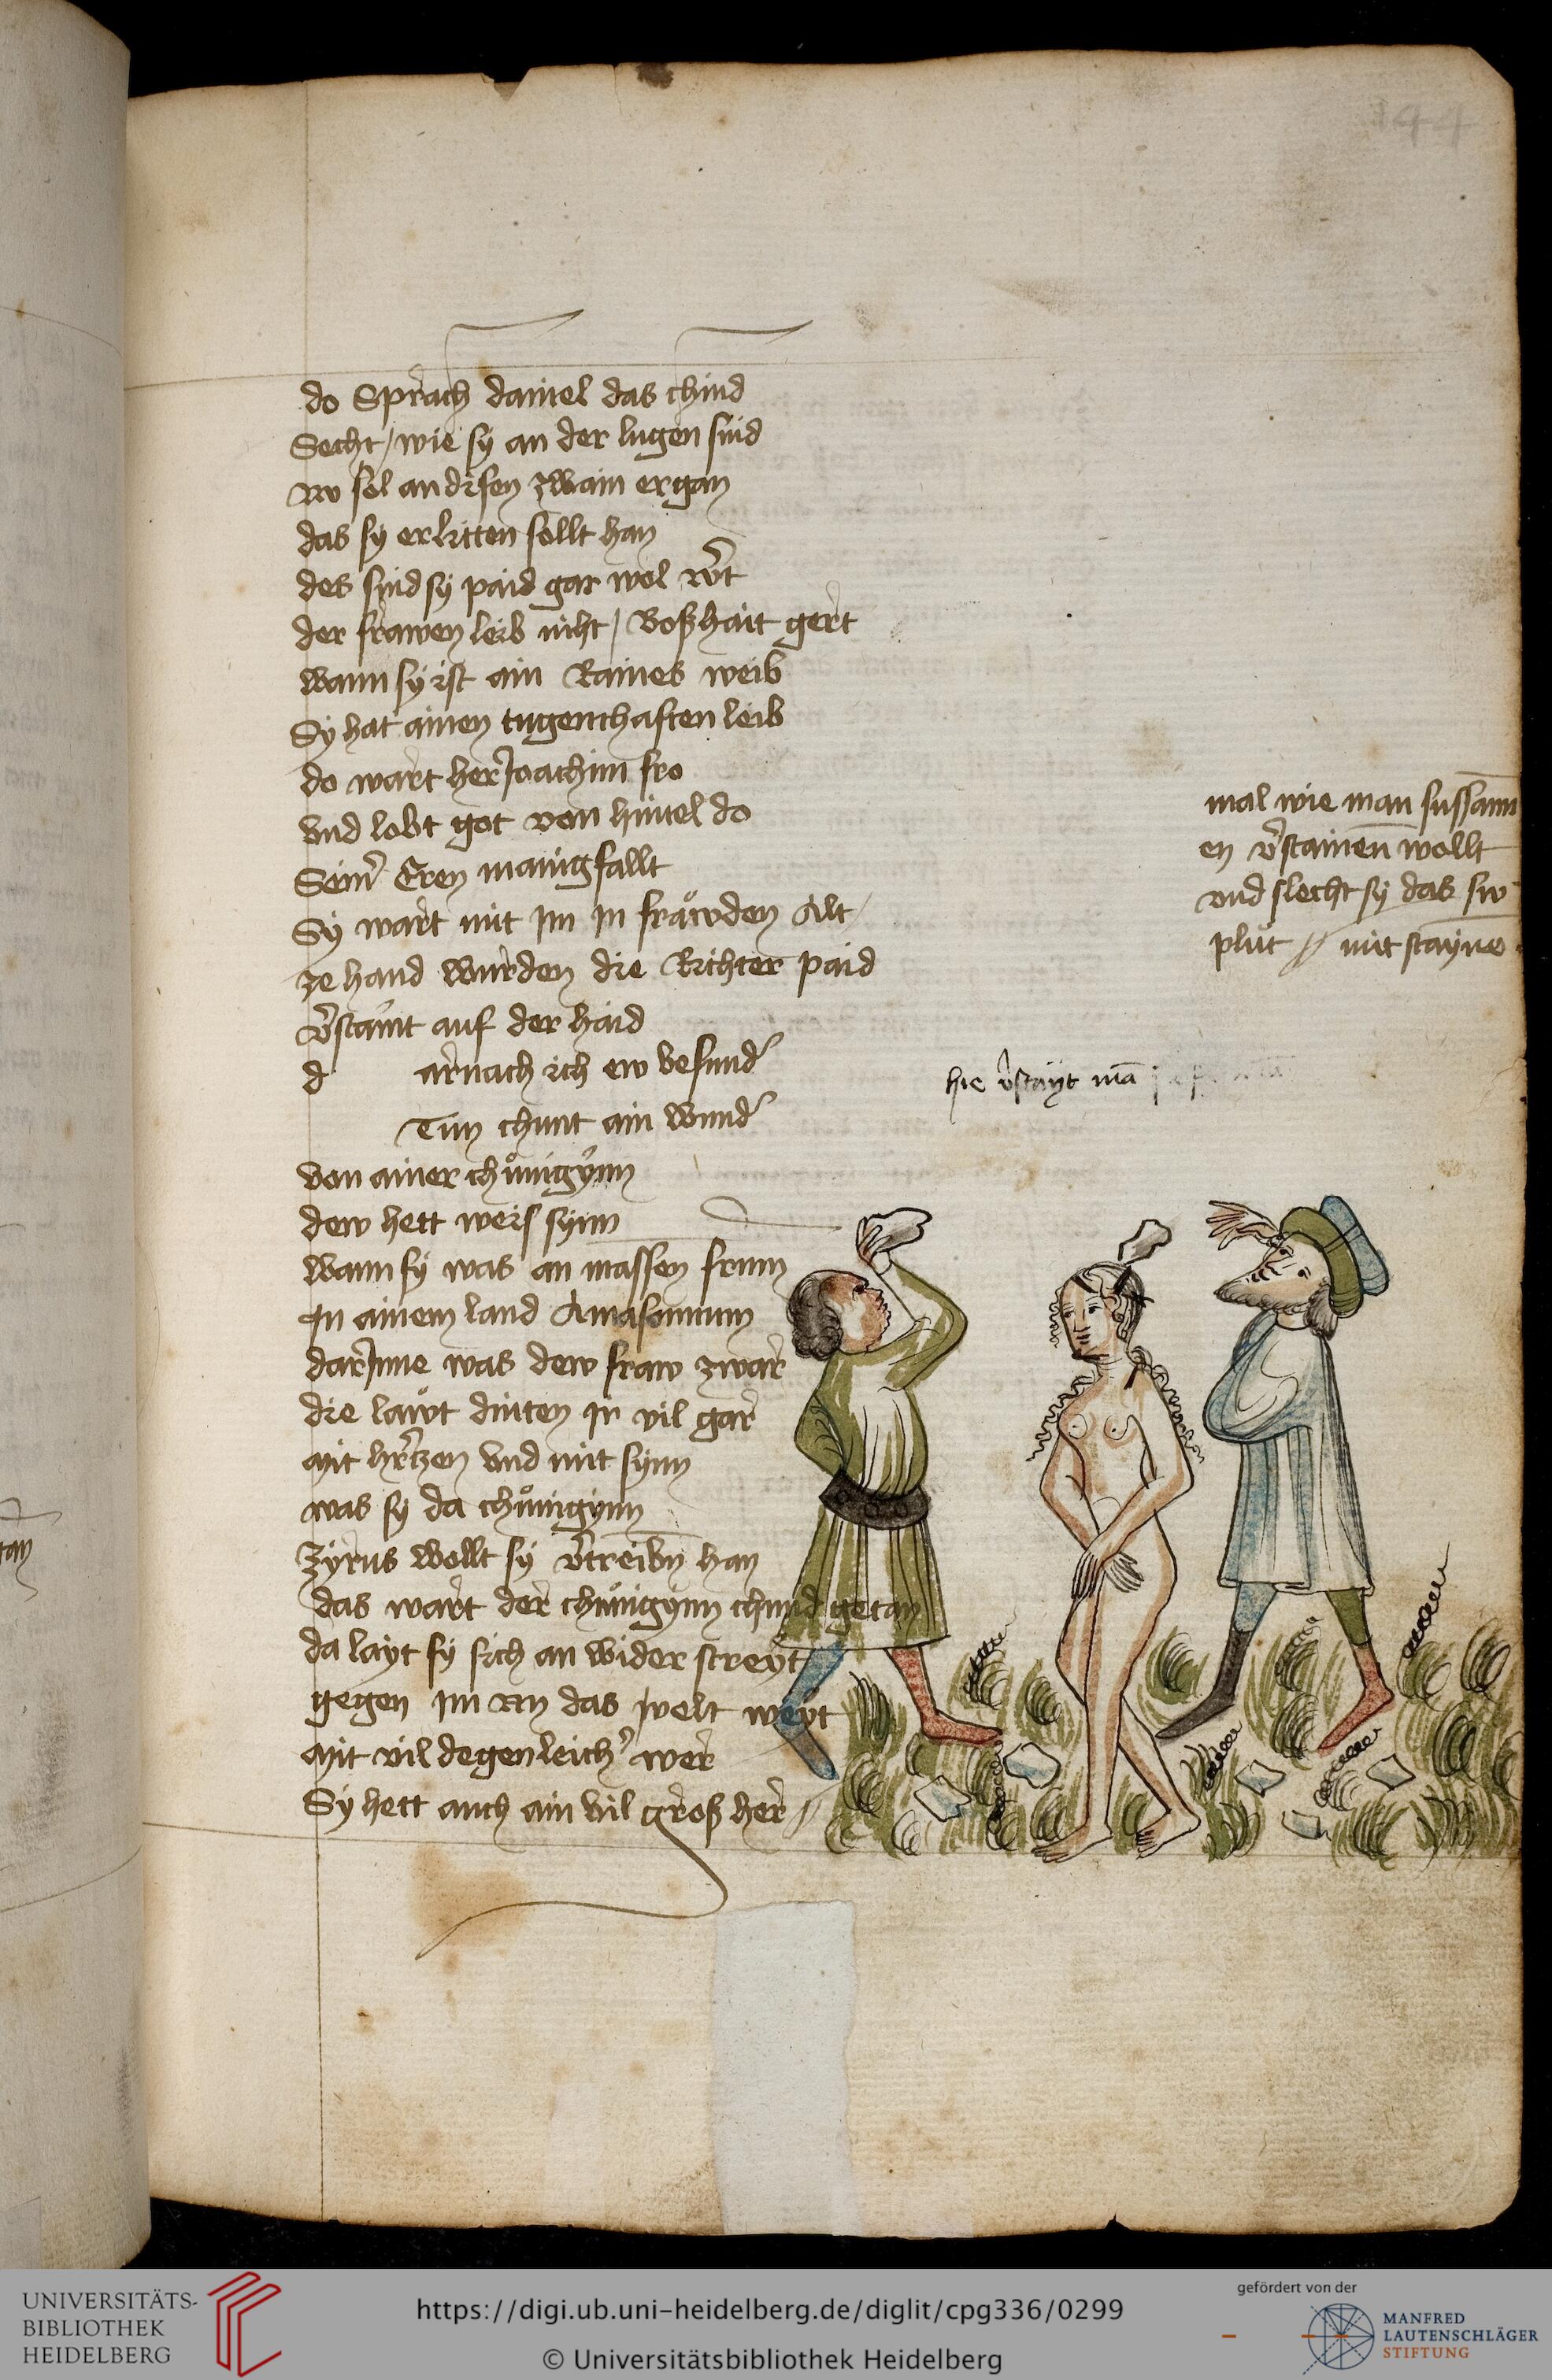 144
do Sprach daniel das chind
Secht / wie sy an der lugen sind
Nv sol an disen zwain ergan
das sy erlitten sollt han
des sind sy paid gar wol w̃t
der frawen leib nicht / Boßhait gert
wann sy ist ain Raines weib
Sy hat ainen tugenthaften leib
do wart her Joachim fro
vnd lobt got von himel do
Seinr̃ Eren manigfallt
Sy wart mit im in fraẘden Alt /
ze hand wurden die Richter paid
v̾staint auf der haid
d arnach ich ew besund̾
Tun chunt ain wund̾
von ainer chůnigynn
dew hett weis synn
wann sy was an massen frum
In ainem land Amasonium
dar Jnne was dew fraw zwar
die laẘt dinten ir vil gar
Mit hr̃tzen vnd mit synn
was sy da chůnigynn
Zyrus wollt sy v̾treibn̄ han
das wart der chůnigynn chund getan
da layt sy sich an wider streyt
gegen im an das velt weyt
Mit vil degenleich̾ wer
Sy hett auch ain vil groß her //
mal wie man sussann
en v̾stainen̄ wollt
vnd slecht sy das sw
plůt // mit stayne
hie v̾stayt mā
UNIVERSITÄTS-
BIBLIOTHEK
HEIDELBERG
https://digi.ub.uni-heidelberg.de/diglit/cpg336/0299
© Universitätsbibliothek Heidelberg
gefördert von der
MANFRED
LAUTENSCHLÄGER
STIFTUNG